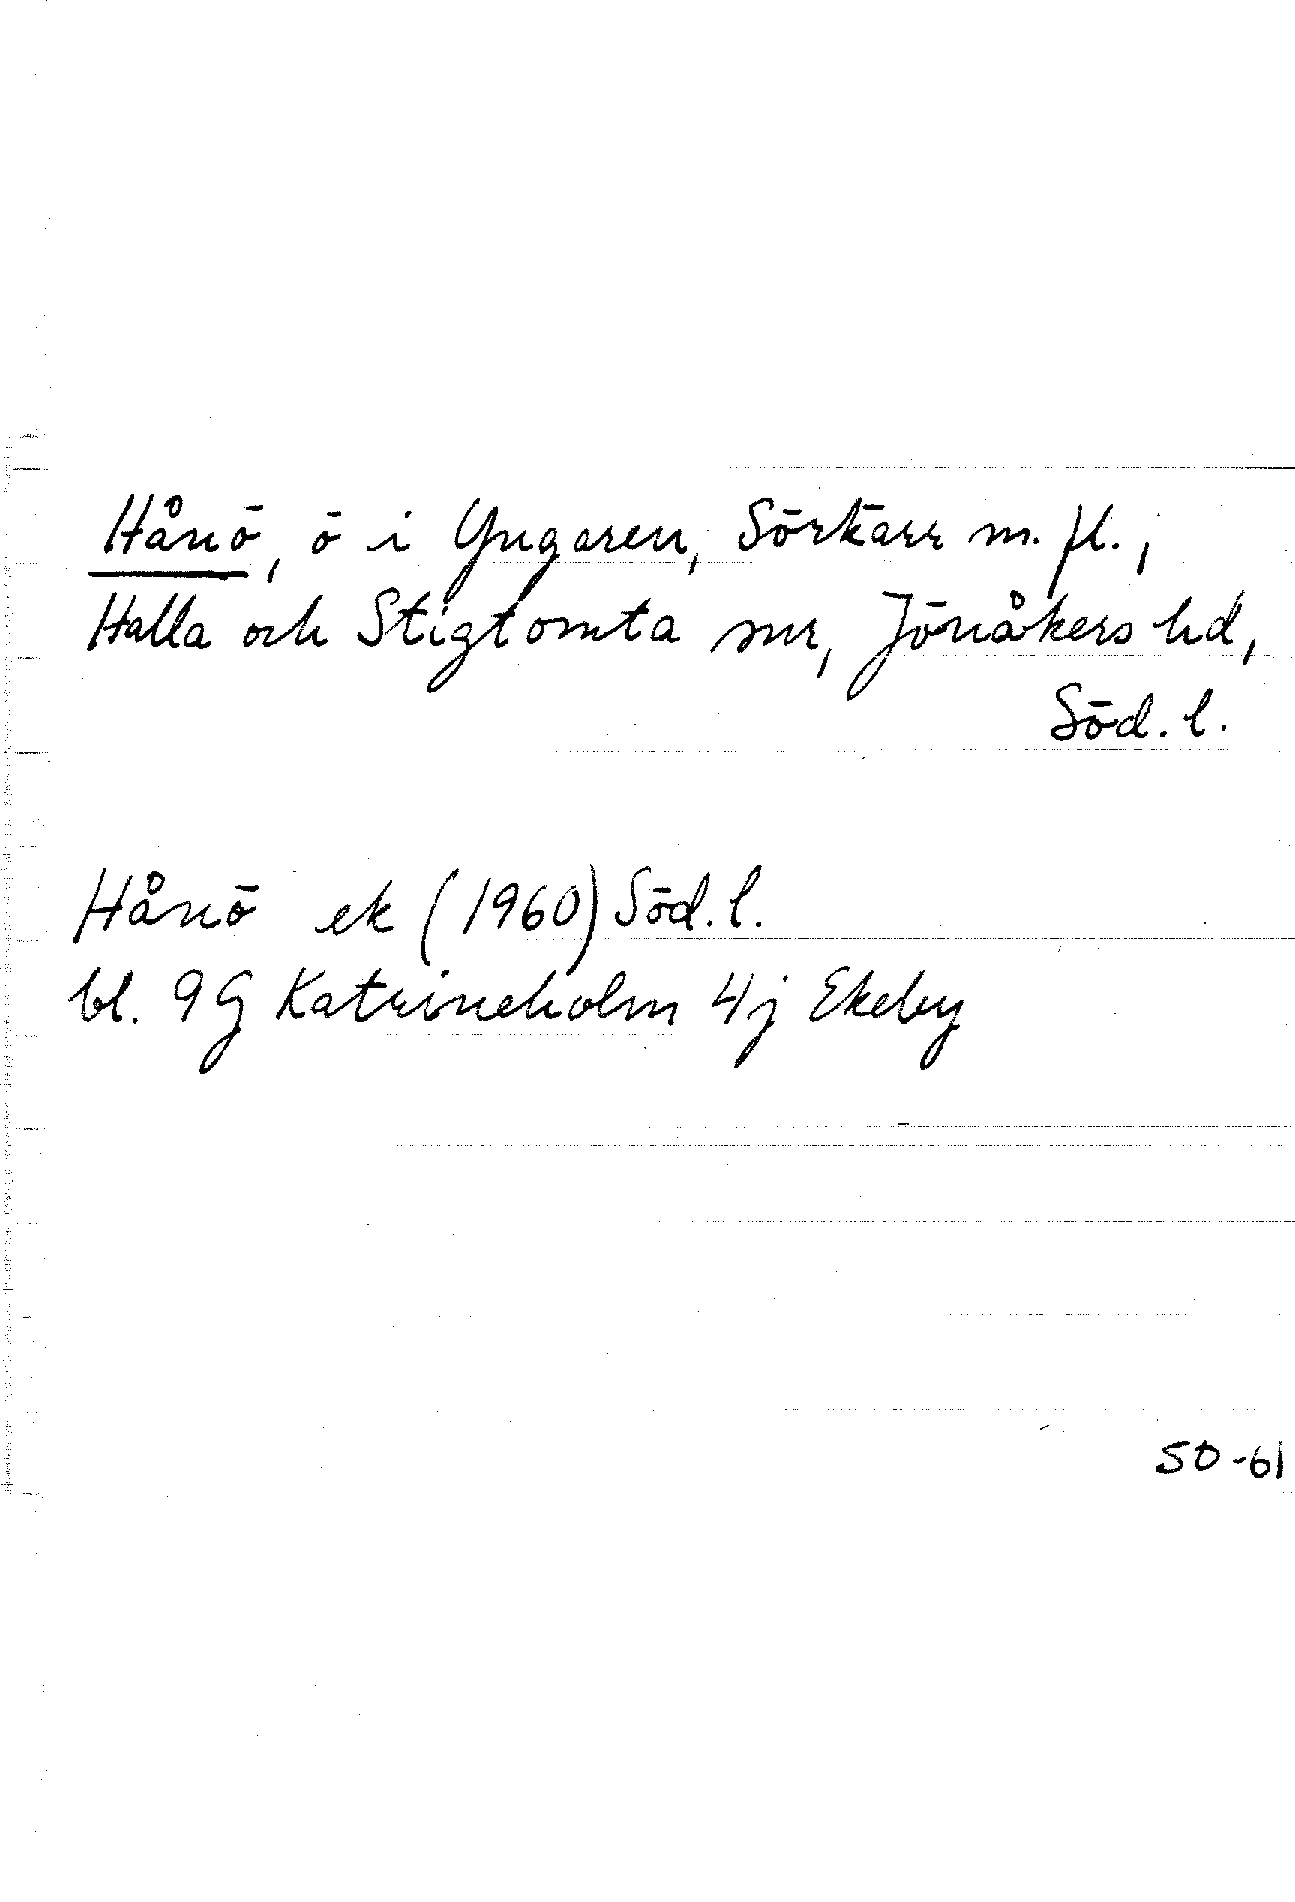 Hånö, ö i Yngaren, Sörkärr m. fl.,
Halla och Stigtomta snr, Jönåkers hd,
Söd. l.
Hånö ek (1960) Söd. l.
bl. 9G Katrineholm 4j Ekeby
SO -61